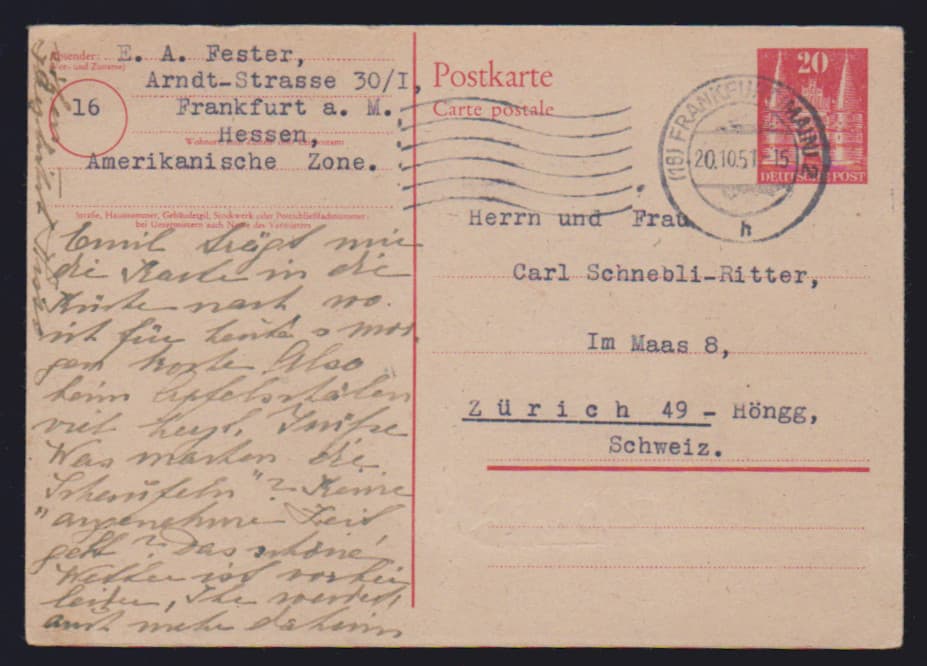 Absender:
(Vor- und Zuname)
E. A. Fester,
Arndt-Strasse 30/I,
16
Frankfurt a. M.
Hessen,
Amerikanische Zone.
Straße, Hausnummer, Gebäudeteil, Stockwerk oder Postschließfachnummer
bei Untermietern auch Name des Vermieters
Emil trägt mir
die Karte in die
Küche nach wo
ich für heute & mor
gen koche. Also
beim Apfelschälen
viel herzl. Grüße
Was machen die
"? Keine
"angenehme Zeit
gell? Das schöne
Wetter ist vorbei
leider, Ihr werdet
auch mehr daheim
Postkarte
Carte postale
20
DEUTSCHE POST
(16) FRANKFURT (MAIN) 2
20.10.51 15
h
Herrn und Frau
Carl Schnebli-Ritter,
Im Maas 8,
Zürich 49 - Höngg,
Schweiz.